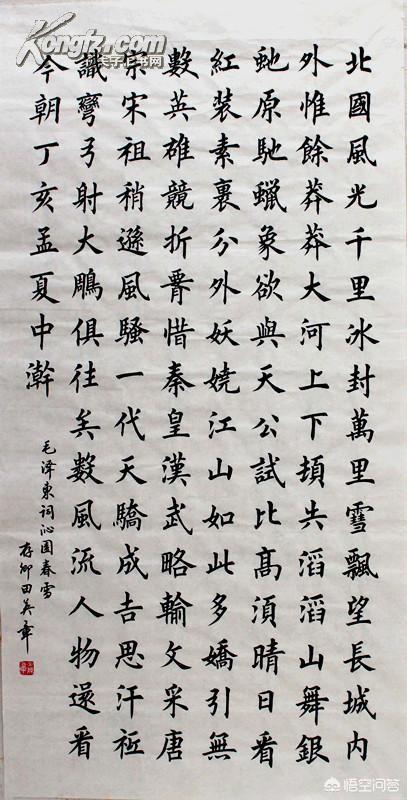 北國風光千里冰封萬里雪飄望長城內
外惟餘莽莽大河上下頓失滔滔山舞銀
虵原馳蠟象欲與天公試比高須晴日看
紅裝素裹分外妖嬈江山如此多嬌引無
數英雄競折腰惜秦皇漢武略輸文采唐
宗宋祖稍遜風騷一代天驕成吉思汗祗
識彎弓射大鵰俱往矣數風流人物還看
今朝丁亥孟夏中澣
毛泽東詞沁園春雪
存卿田英章
Kongfz.com
悟空问答